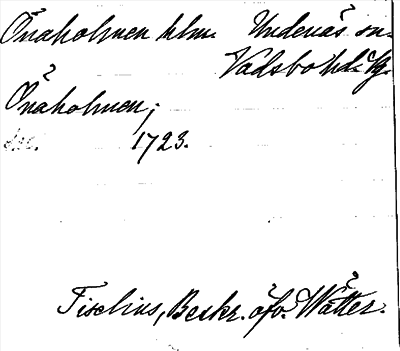 Önaholmen hlm. Undenäs sn.
Vadsbo hd. Sk.
Önaholmen;
1723.
Tiselius, Beskr. öfv. Wätter.